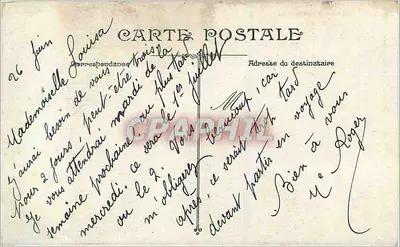 CARTE POSTALE
Correspondance
Adresse du destinataire
26 Juin
Mademoiselle Louisa
J'aurai besoin de vous
pour 2 jours peut-être trois
Je vous attendrai mardi de la
semaine prochaine au plus tard
mercredi. ce serait le 1er juillet
ou le 2. Vous
m'obligerez beaucoup, car
après, ce serait trop tard
devant partir en voyage
Bien à vous
Me Roger
CPAPHIL